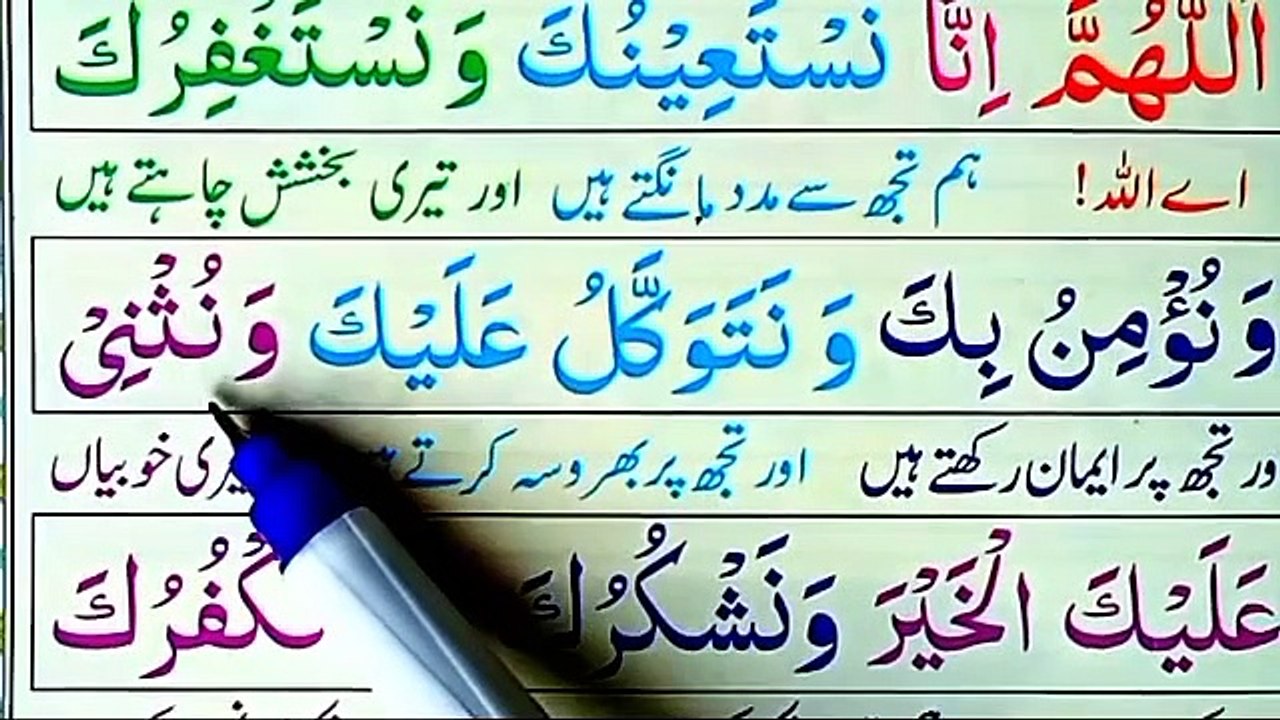 اَللّٰهُمَّ اِنَّا نَسْتَعِيْنُكَ وَنَسْتَغْفِرُكَ
اے اللہ! ہم تجھ سے مدد مانگتے ہیں اور تیری بخشش چاہتے ہیں
وَنُؤْمِنُ بِكَ وَنَتَوَكَّلُ عَلَيْكَ وَنُثْنِیْ
ور تجھ پر ایمان رکھتے ہیں اور تجھ پر بھروسہ کرتے خوبیاں
عَلَيْكَ الْخَيْرَ وَنَشْكُرُكَ